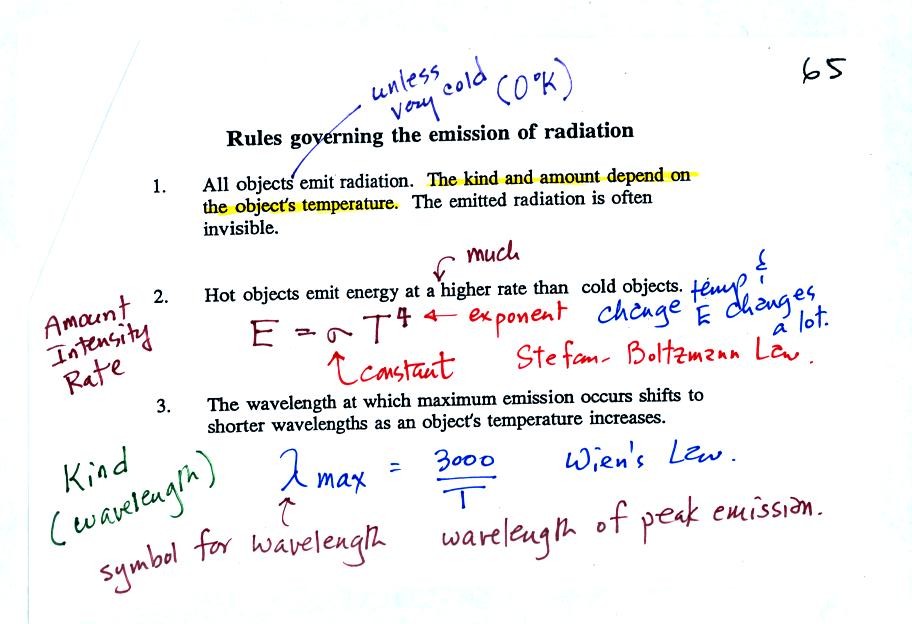 65
unless
very cold (0°K)
Rules governing the emission of radiation
1. All objects emit radiation. The kind and amount depend on
the object's temperature. The emitted radiation is often
invisible.
much
2. Hot objects emit energy at a higher rate than cold objects.
change temp & E changes
a lot.
Amount
Intensity
Rate
E = σ T⁴ ← exponent
constant
Stefan-Boltzmann Law.
3. The wavelength at which maximum emission occurs shifts to
shorter wavelengths as an object's temperature increases.
Kind
(wavelength)
λ max = 3000 / T Wien's Law.
symbol for wavelength
wavelength of peak emission.